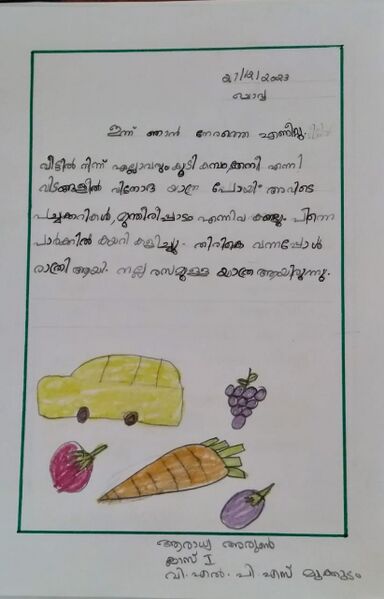 27/12/2023
ബുധൻ
ഇന്ന് ഞാൻ നേരത്തെ എണീറ്റു.
വീട്ടിൽ നിന്ന് എല്ലാവരും കൂടി കമ്പം, തേനി എന്നി
വിടങ്ങളിൽ വിനോദ യാത്ര പോയി. അവിടെ
പച്ചക്കറികൾ, മുന്തിരിപ്പാടം എന്നിവ കണ്ടു. പിന്നെ
പാർക്കിൽ കയറി കളിച്ചു. തിരികെ വന്നപ്പോൾ
രാത്രി ആയി. നല്ല രസമുള്ള യാത്ര ആയിരുന്നു.
ആരാധ്യ അരുൺ
ക്ലാസ് I
വി. എൽ. പി. എസ് മുക്കൂടം